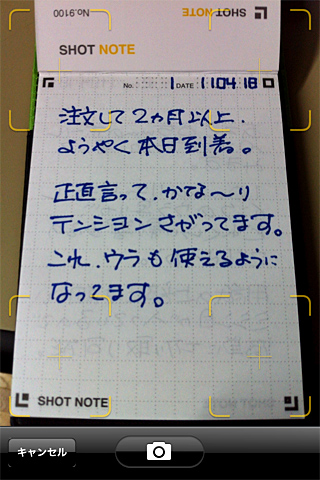 SHOT NOTE
No.9100
SHOT NOTE
No. 1 DATE 11.04.18
注文して2ヵ月以上.
ようやく本日到着。
正直言って、かな〜り
テンションさがってます。
これ、ウラも使えるように
なってます。
SHOT NOTE
キャンセル